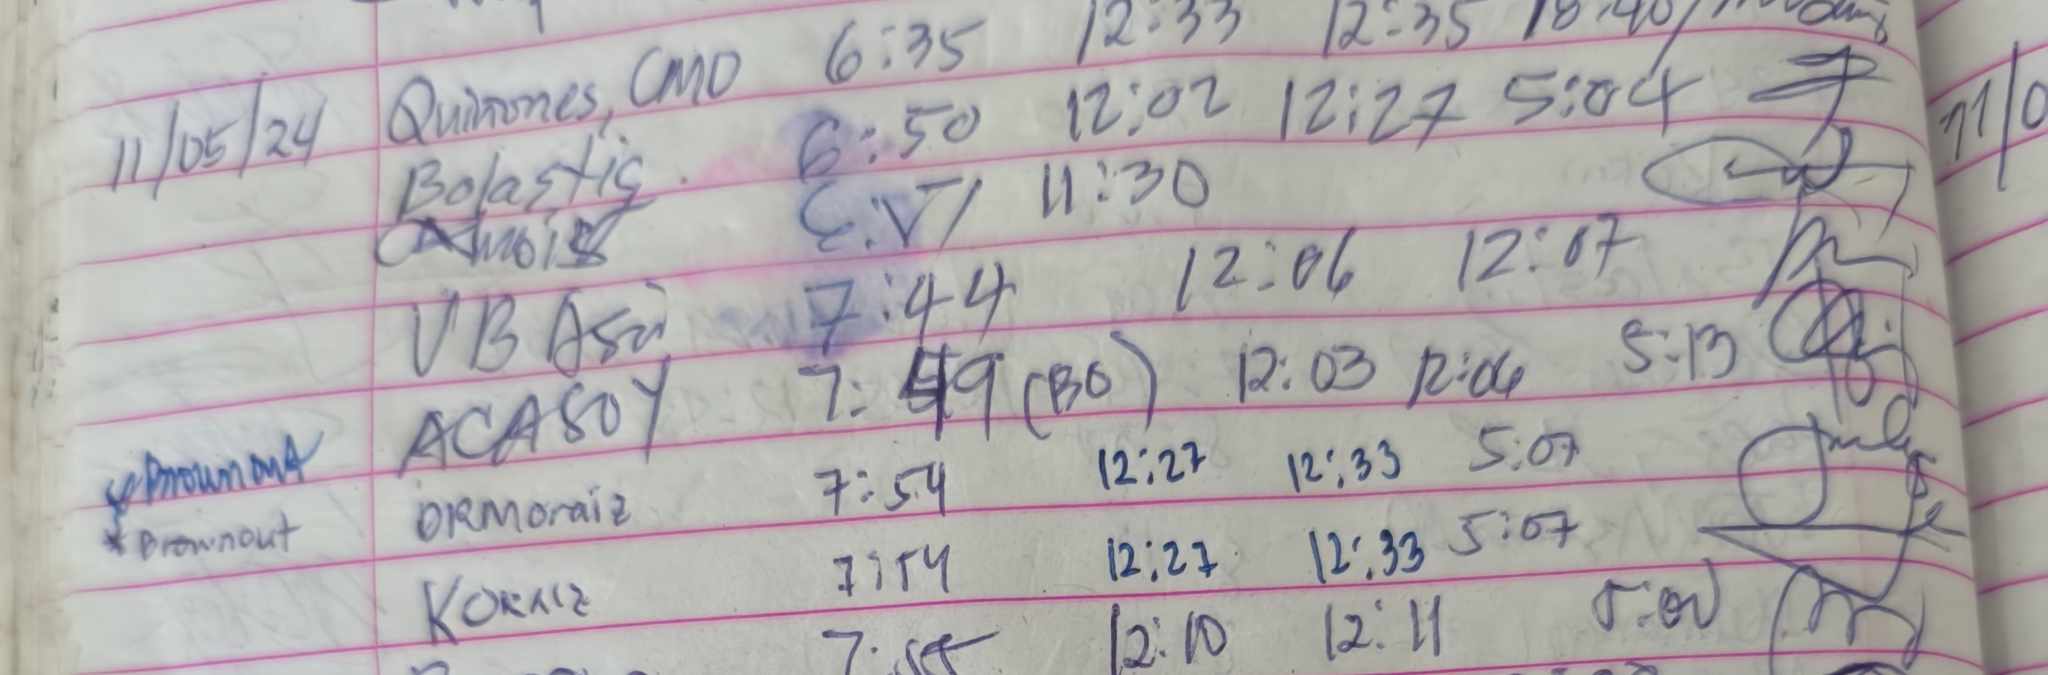 6:35 12:33 12:35 18:40
11/05/24 Quinones, CMO 6:50 12:02 12:27 5:04
Bolastig 11:30
VB 7:44 12:06 12:07
ACASOY 7:49 (BO) 12:03 12:06 5:13
Brownout
ORMoraiz 7:54 12:27 12:33 5:07
* Brownout
KORAIZ 7:54 12:27 12:33 5:07
7:55 12:10 12:11
11/0